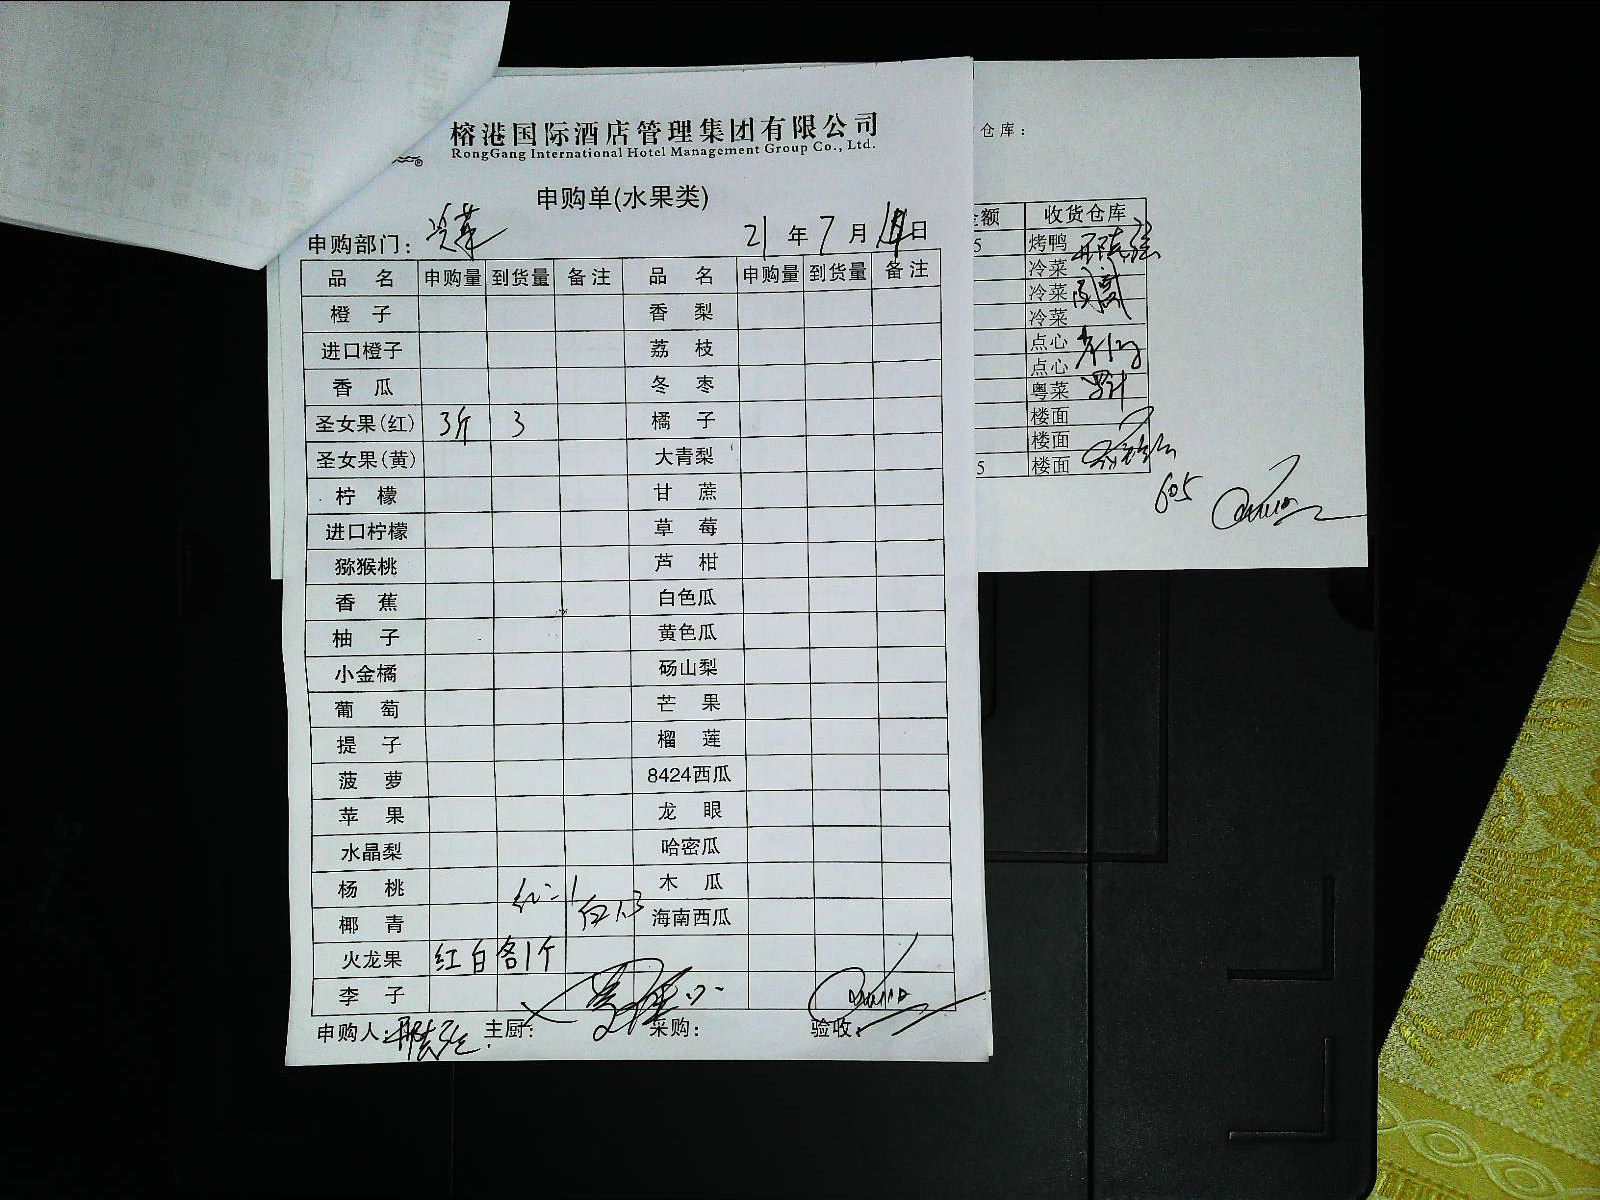 榕港国际酒店管理集团有限公司
RongGang International Hotel Management Group Co., Ltd.
申购单(水果类)
申购部门: 冷菜 21 年 7 月 日
品 名 申购量 到货量 备注 品 名 申购量 到货量 备注
橙 子 香 梨
进口橙子 荔 枝
香 瓜 冬 枣
圣女果(红) 3斤 3 橘 子
圣女果(黄) 大青梨
柠 檬 甘 蔗
进口柠檬 草 莓
猕猴桃 芦 柑
香 蕉 白色瓜
柚 子 黄色瓜
小金橘 砀山梨
葡 萄 芒 果
提 子 榴 莲
菠 萝 8424西瓜
苹 果 龙 眼
水晶梨 哈密瓜
杨 桃 木 瓜
椰 青 白1.3 海南西瓜
火龙果 红白各1个
李 子
申购人: 主厨: 采购: 验收:
仓库:
金额 收货仓库
5 烤鸭
冷菜
冷菜
冷菜
点心
点心
粤菜
楼面
楼面
5 楼面
605